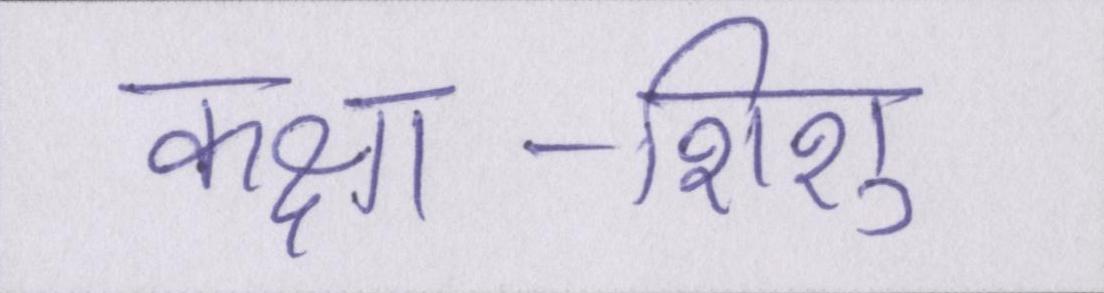 कक्षा -शिशु